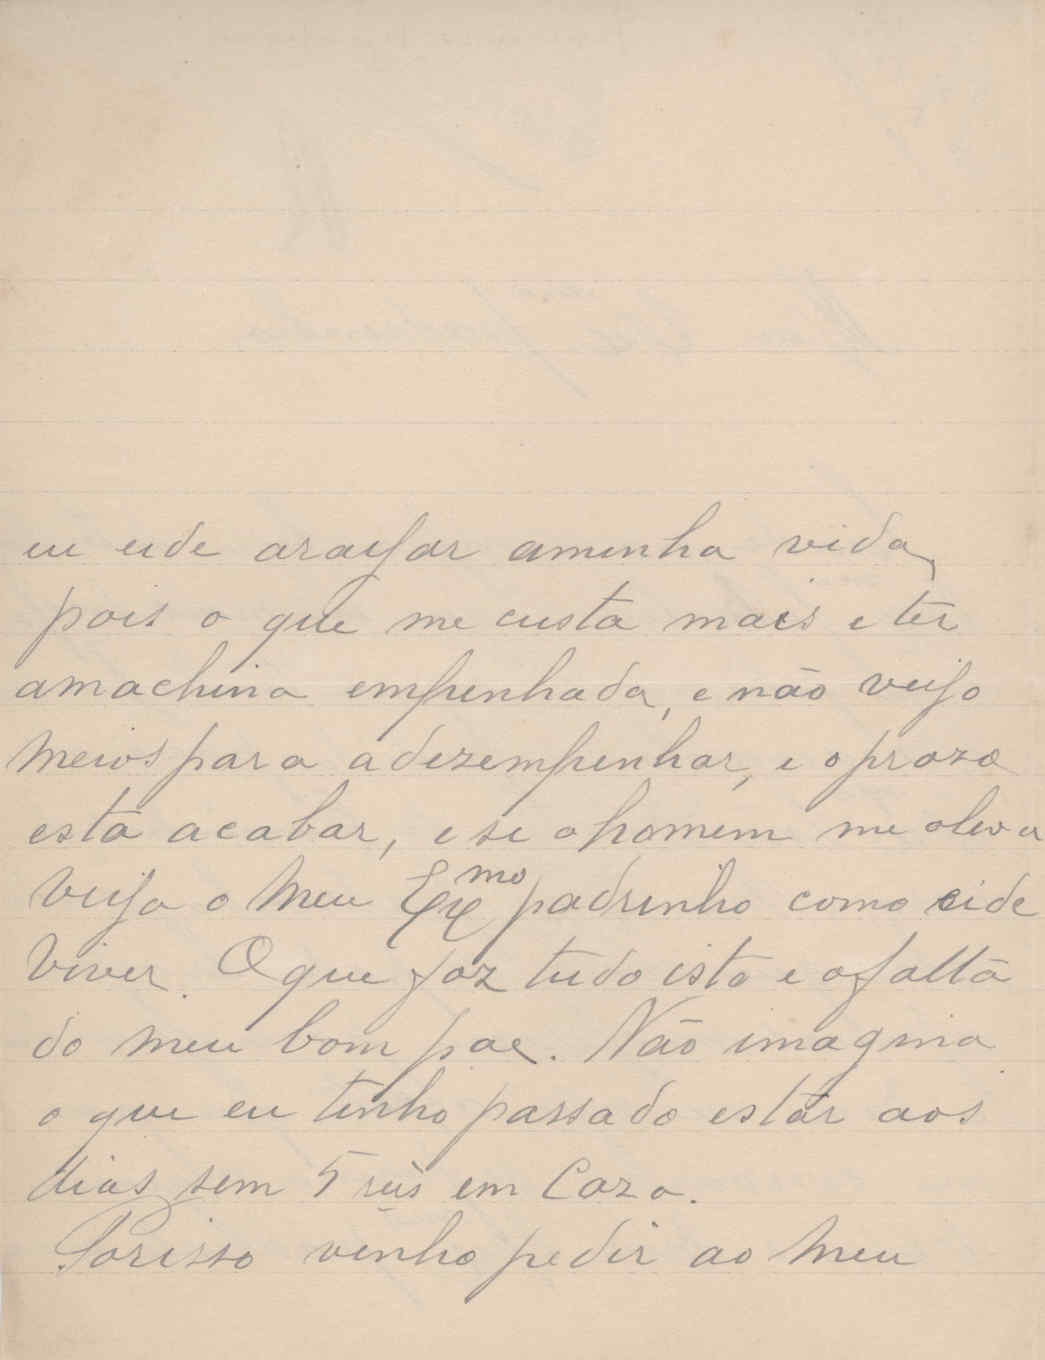 eu eide araujar aminha vida,
pois o que me custa mais e ter
amachina empenhada, e não vejo
meios para adezempenhar, e oprazo
está acabar, e se ohomem me aleva
Veija o Meu Exmo padrinho como eide
Viver. Oque faz tudo isto e afalta
do meu bom pae. Não imagina
o que eu tenho passado estár aos
dias sem 5 reis em Caza.
Porisso venho pedir ao Meu